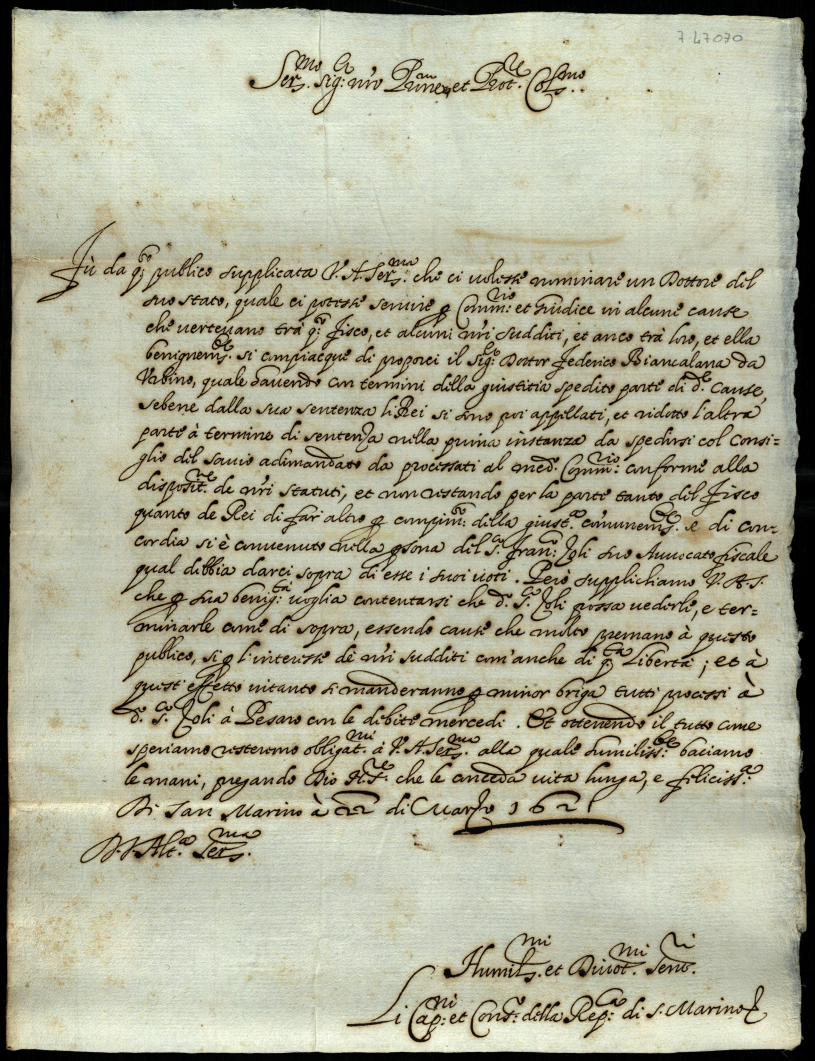 7 47070
Ser.mo Sig.r n'ro P'rone, et Prot.re Col.mo
Fù da q.sto publico supplicata V. A. Ser.ma che ci volesse nominare un Dottore del
suo stato, quale ci potesse servire p Comm.rio et Giudice in alcune cause
che vertevano trà q.sto fisco, et alcuni n'ri sudditi, et anco trà loro, et ella
benignem.te si compiacque di proporci il Sig.r Dottor Federico Biancalana da
Urbino, quale havendo con termini della giustitia spedito parte di d.e Cause,
sebene dalla sua sentenza li Rei si sono poi appellati, et ridotto l'altra
parte à termine di sentenza nella prima instanza da spedirsi col Consi=
glio del savio adimandato da processati al med.o Comm.rio conforme alla
disposit.ne de n'ri statuti, et non restando per la parte tanto del fisco
quanto de Rei di far altro p compim.to della giust.a comunem.te e di con=
cordia si è convenuto nella p'sona del S.r Fran.co Zoli suo Avvocato fiscale
qual debbia darci sopra di esse i suoi voti. Però supplichiamo V. A. S.
che p sua benig.tà voglia contentarsi che d.o S.r Zoli possa vederle, e ter=
minarle come di sopra, essendo cause che molto premano à questo
publico, si p l'interesse de n'ri sudditi com'anche di q.sta Libertà; et à
quest'effetto intanto si manderanno p minor briga tutti processi à
d.o S.r Zoli à Pesaro con le debite mercedi. Et ottenendo il tutto come
speriamo resteremo obligat.mi à V. A. Ser.ma alla quale humiliss.te baciamo
le mani, pregando Dio N. S.re che le conceda vita lunga, e feliciss.a
Di San Marino à 22 di Marzo 1621
D. V. Alt.a Ser.ma
Humil.mi et Divot.mi Serv.ri
Li Cap.ni et Cons.o della Rep.ca di S. Marino